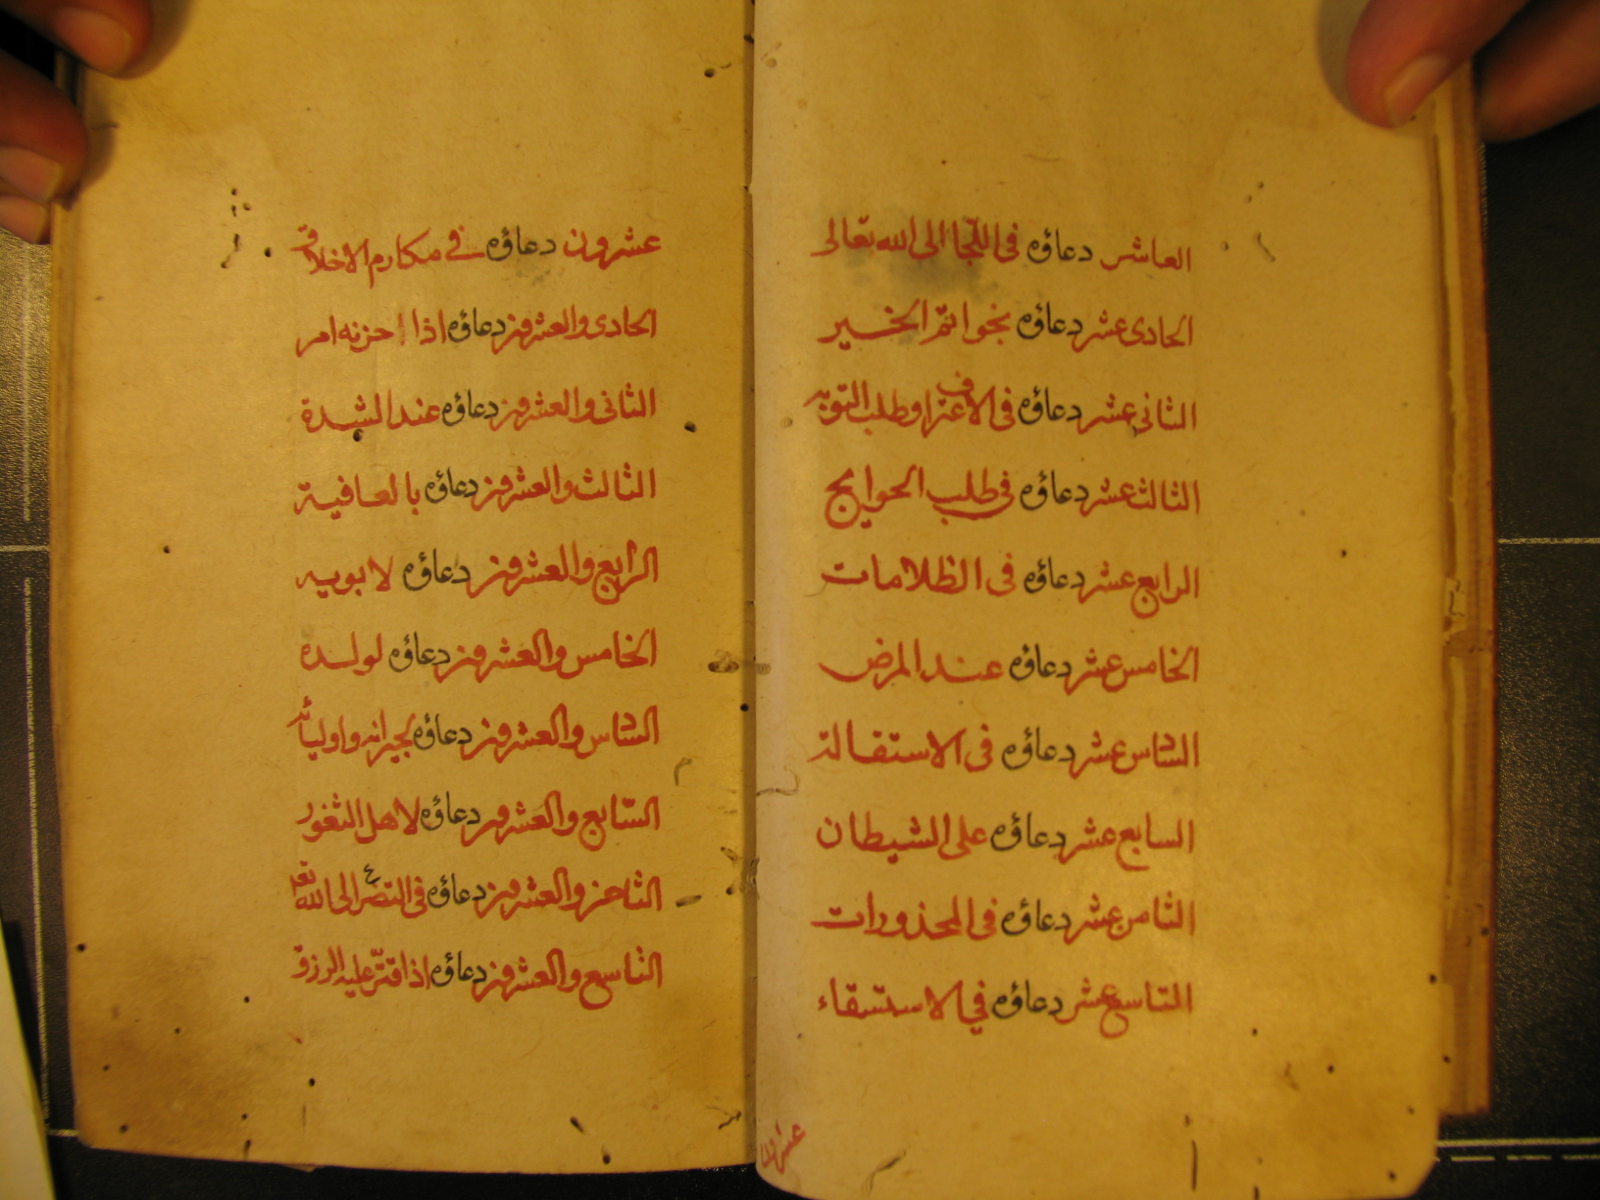 العاشر دعاؤه فى اللجا الى الله تعالى
الحادى عشر دعاؤه بخواتم الخير
الثانى عشر دعاؤه فى الاعتراف وطلب التوبة
الثالث عشر دعاؤه فى طلب الحوايج
الرابع عشر دعاؤه فى الظلامات
الخامس عشر دعاؤه عند المرض
السادس عشر دعاؤه فى الاستقالة
السابع عشر دعاؤه على الشيطان
الثامن عشر دعاؤه فى المحذورات
التاسع عشر دعاؤه في الاستسقاء
عشرون
عشرون دعاؤه في مكارم الاخلاق
الحادى والعشرون دعاؤه اذا احزنه امر
الثانى والعشرون دعاؤه عند الشدة
الثالث والعشرون دعاؤه بالعافية
الرابع والعشرون دعاؤه لابويه
الخامس والعشرون دعاؤه لولده
السادس والعشرون دعاؤه لجيرانه واوليائه
السابع والعشرون دعاؤه لاهل الثغور
الثامن والعشرون دعاؤه فى التضرع الى الله تعا
التاسع والعشرون دعاؤه اذا قتّر عليه الرزق